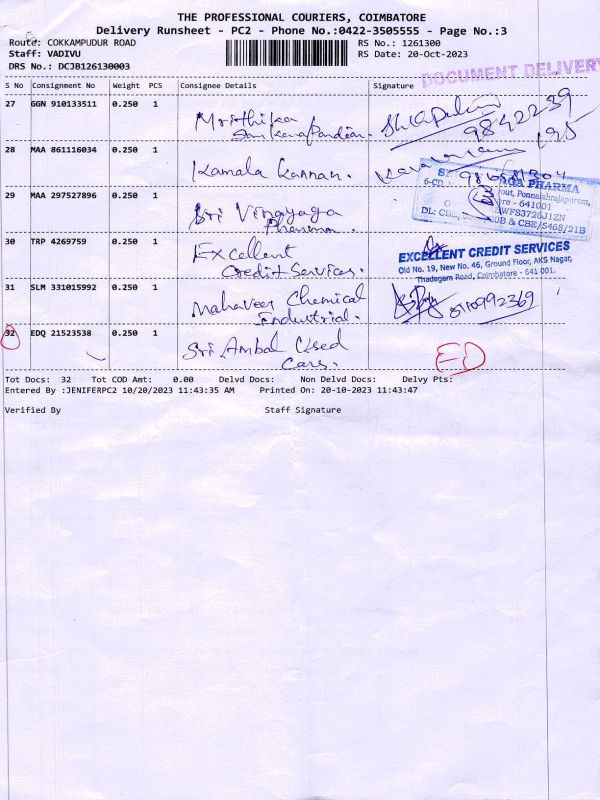 THE PROFESSIONAL COURIERS, COIMBATORE
Delivery Runsheet - PC2 - Phone No.:0422-3505555 - Page No.:3
Route: COKKAMPUDUR ROAD RS No.: 1261300
Staff: VADIVU RS Date: 20-Oct-2023
DRS No.: DCJB126130003
DOCUMENT DELIVERY
S No Consignment No Weight PCS Consignee Details Signature
27 GGN 910133511 0.250 1 Mrithika
Sankarapandian. 9842239
195
28 MAA 861116034 0.250 1 Kamala Kannan.
29 MAA 297527896 0.250 1 Sri Vinayaga
Pharma
PHARMA
6-CD, out, Ponnaiahrajapuram,
ore - 641001
DL: CBE, 20B & CBE/5468/21B
30 TRP 4269759 0.250 1 Excellent
Credit Services.
EXCELLENT CREDIT SERVICES
Old No. 19, New No. 46, Ground Floor, AKS Nagar,
Thadagam Road, Coimbatore - 641 001.
31 SLM 331015992 0.250 1 Mahaveer Chemical
Industrial. 8110992369
32 EDQ 21523538 0.250 1 Sri Ambal Used
Cars. ED
Tot Docs: 32 Tot COD Amt: 0.00 Delvd Docs: Non Delvd Docs: Delvy Pts:
Entered By :JENIFERPC2 10/20/2023 11:43:35 AM Printed On: 20-10-2023 11:43:47
Verified By Staff Signature